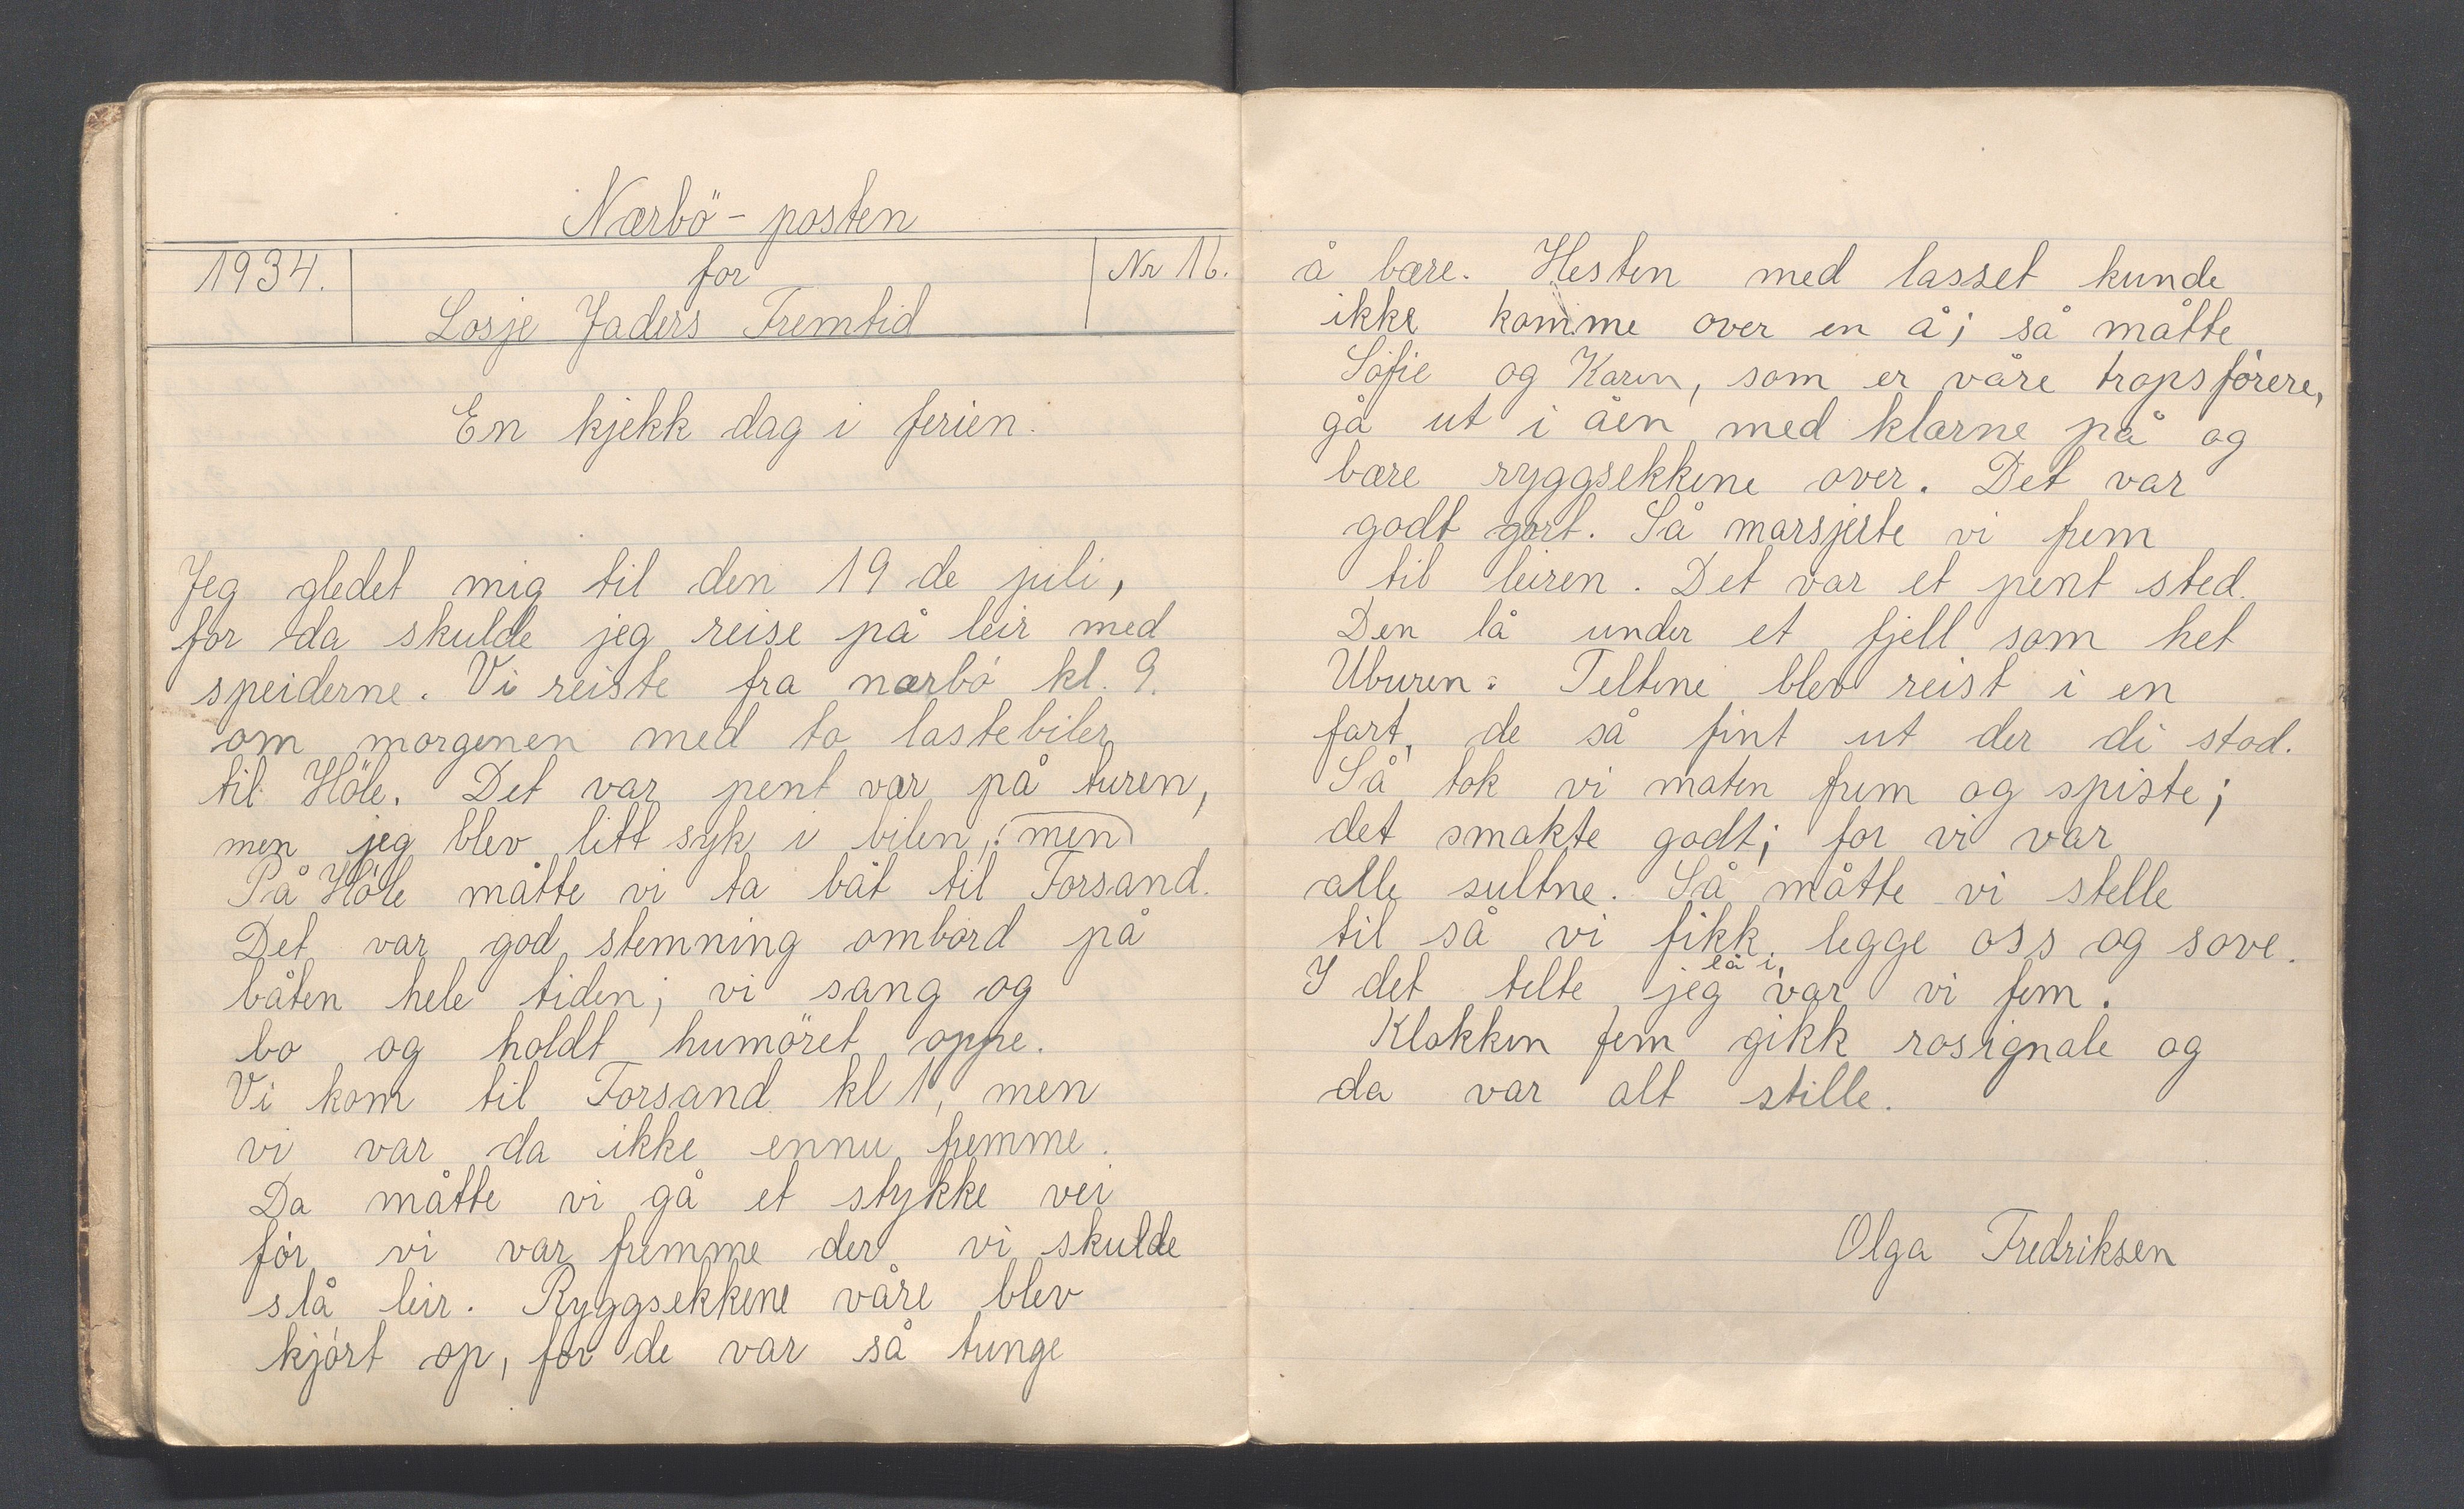 Nærbö-posten
1934.
for
Nr 16.
Losje Jaders Fremtid
En kjekk dag i ferien.
Jeg gledet mig til den 19 de juli,
for da skulde jeg reise på leir med
speiderne. Vi reiste fra nærbó kl. 9.
om morgenen med to lastebiler
til Höle. Det var pent vær på turen,
men jeg blev litt syk i bilen, (men)
På Höle måtte vi ta båt til Forsand.
Det var god stemning ombord på
båten hele tiden; vi sang og
lo og holdt humöret oppe.
Vi kom til Forsand kl 1, men
vi var da ikke ennu fremme.
Da måtte vi gå et stykke vei
fór vi var fremme der vi skulde
slå leir. Ryggsekkene våre blev
kjórt op, for de var så tunge
å bære. Hesten med lasset kunde
ikke komme over en å; så måtte
Sofie og Karen, som er våre tropsfórere,
gå ut i åen med klærne på og
bære ryggsekkene over. Det var
godt gort. Så marsjerte vi frem
til leiren. Det var et pent sted.
Den lå under et fjell som het
Uburen. Teltene blev reist i en
fart, de så fint ut der di stod.
Så tok vi maten frem og spiste;
det smakte godt; for vi var
alle sultne. Så måtte vi stelle
til så vi fikk legge oss og sove.
I det telte jeg lå i, var vi fem.
Klokken fem gikk rosignale og
da var alt stille.
Olga Fredriksen